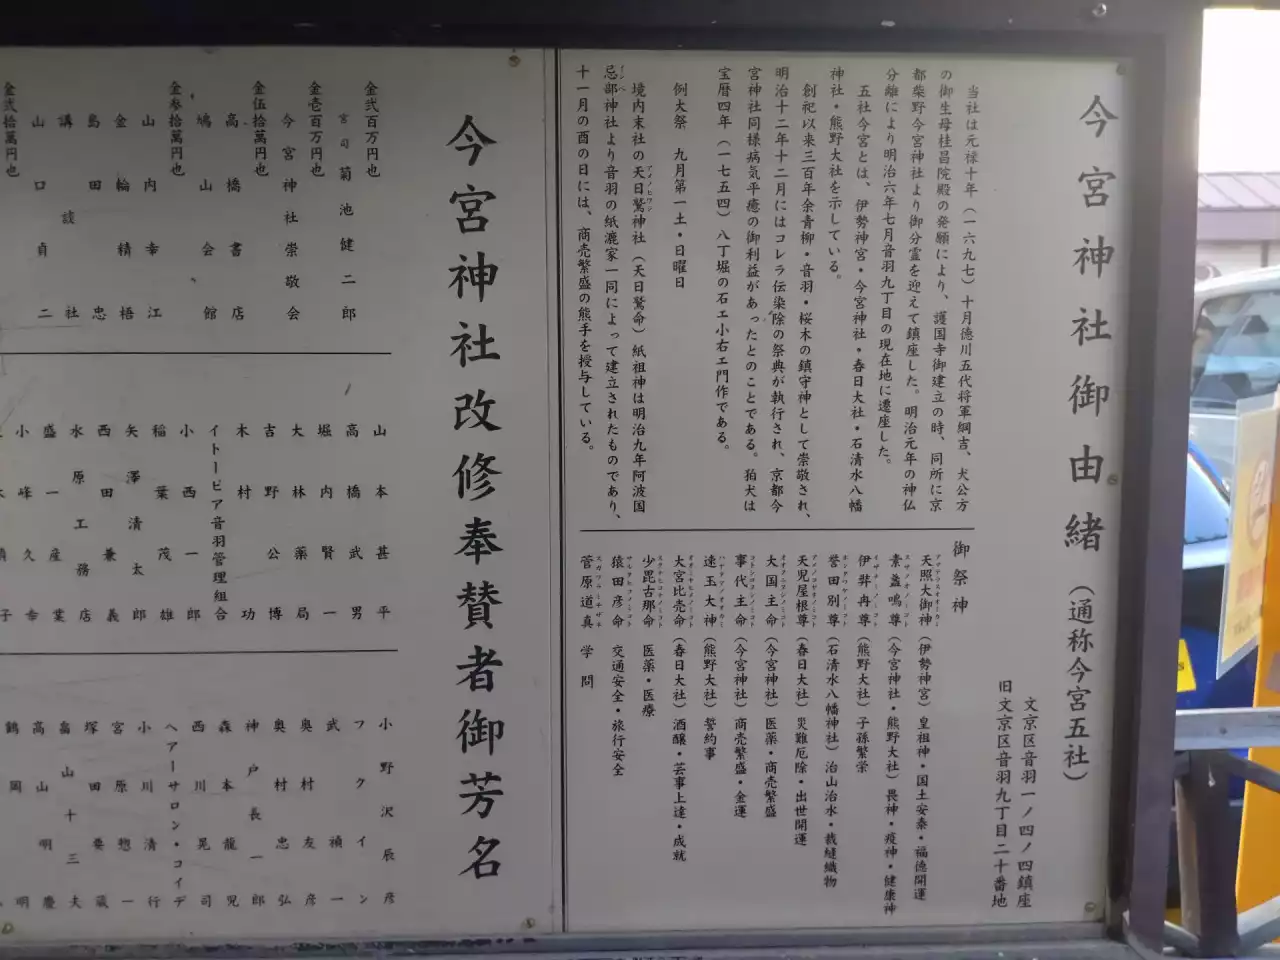 今宮神社御由緒（通称今宮五社）
文京区音羽一ノ四ノ四鎮座
旧文京区音羽九丁目二十番地
当社は元禄十年（一六九七）十月徳川五代将軍綱吉、犬公方
の御生母桂昌院殿の発願により、護国寺御建立の時、同所に京
都柴野今宮神社より御分霊を迎えて鎮座した。明治元年の神仏
分離により明治六年七月音羽九丁目の現在地に遷座した。
五社今宮とは、伊勢神宮・今宮神社・春日大社・石清水八幡
神社・熊野大社を示している。
創祀以来三百年余青柳・音羽・桜木の鎮守神として崇敬され、
明治十二年十二月にはコレラ伝染除の祭典が執行され、京都今
宮神社同様病気平癒の御利益があったとのことである。狛犬は
宝暦四年（一七五四）八丁堀の石工小右エ門作である。
例大祭 九月第一土・日曜日
境内末社の天日鷲神社（天日鷲命）紙祖神は明治九年阿波国
忌部神社より音羽の紙漉家一同によって建立されたものであり、
十一月の酉の日には、商売繁盛の熊手を授与している。
御祭神
天照大御神（伊勢神宮）皇祖神・国土安泰・福徳開運
素盞鳴尊（今宮神社・熊野大社）畏神・疫神・健康神
伊弉冉尊（熊野大社）子孫繁栄
誉田別尊（石清水八幡神社）治山治水・裁縫織物
天児屋根尊（春日大社）災難厄除・出世開運
大国主命（今宮神社）医薬・商売繁盛
事代主命（今宮神社）商売繁盛・金運
速玉大神（熊野大社）誓約事
大宮比売命（春日大社）酒醸・芸事上達・成就
少毘古那命 医薬・医療
猿田彦命 交通安全・旅行安全
菅原道真 学問
今宮神社改修奉賛者御芳名
金弐百万円也
宮司 菊池健二郎
金壱百万円也
今宮神社崇敬会
金伍拾萬円也
高橋書店
鳩山会館
金参拾萬円也
山内幸江
金輪精梧
島田忠
講談社
山口貞二
金弐拾萬円也
山本甚平
高橋武男
堀内賢一
大林薬局
吉野公博
木村功
イトーピア音羽管理組合
小西郎
稲葉茂雄
矢澤清太郎
西田兼義
水原工務店
盛一産業
小峰久幸
小野沢辰彦
フクイン
武禎一
奥村友彦
奥村忠弘
神戸長一郎
森本龍児
西川晃司
ヘアーサロン・コイデ
小川清行
宮原惣一
塚田要蔵
畠山十三夫
高山明慶
鶴岡明